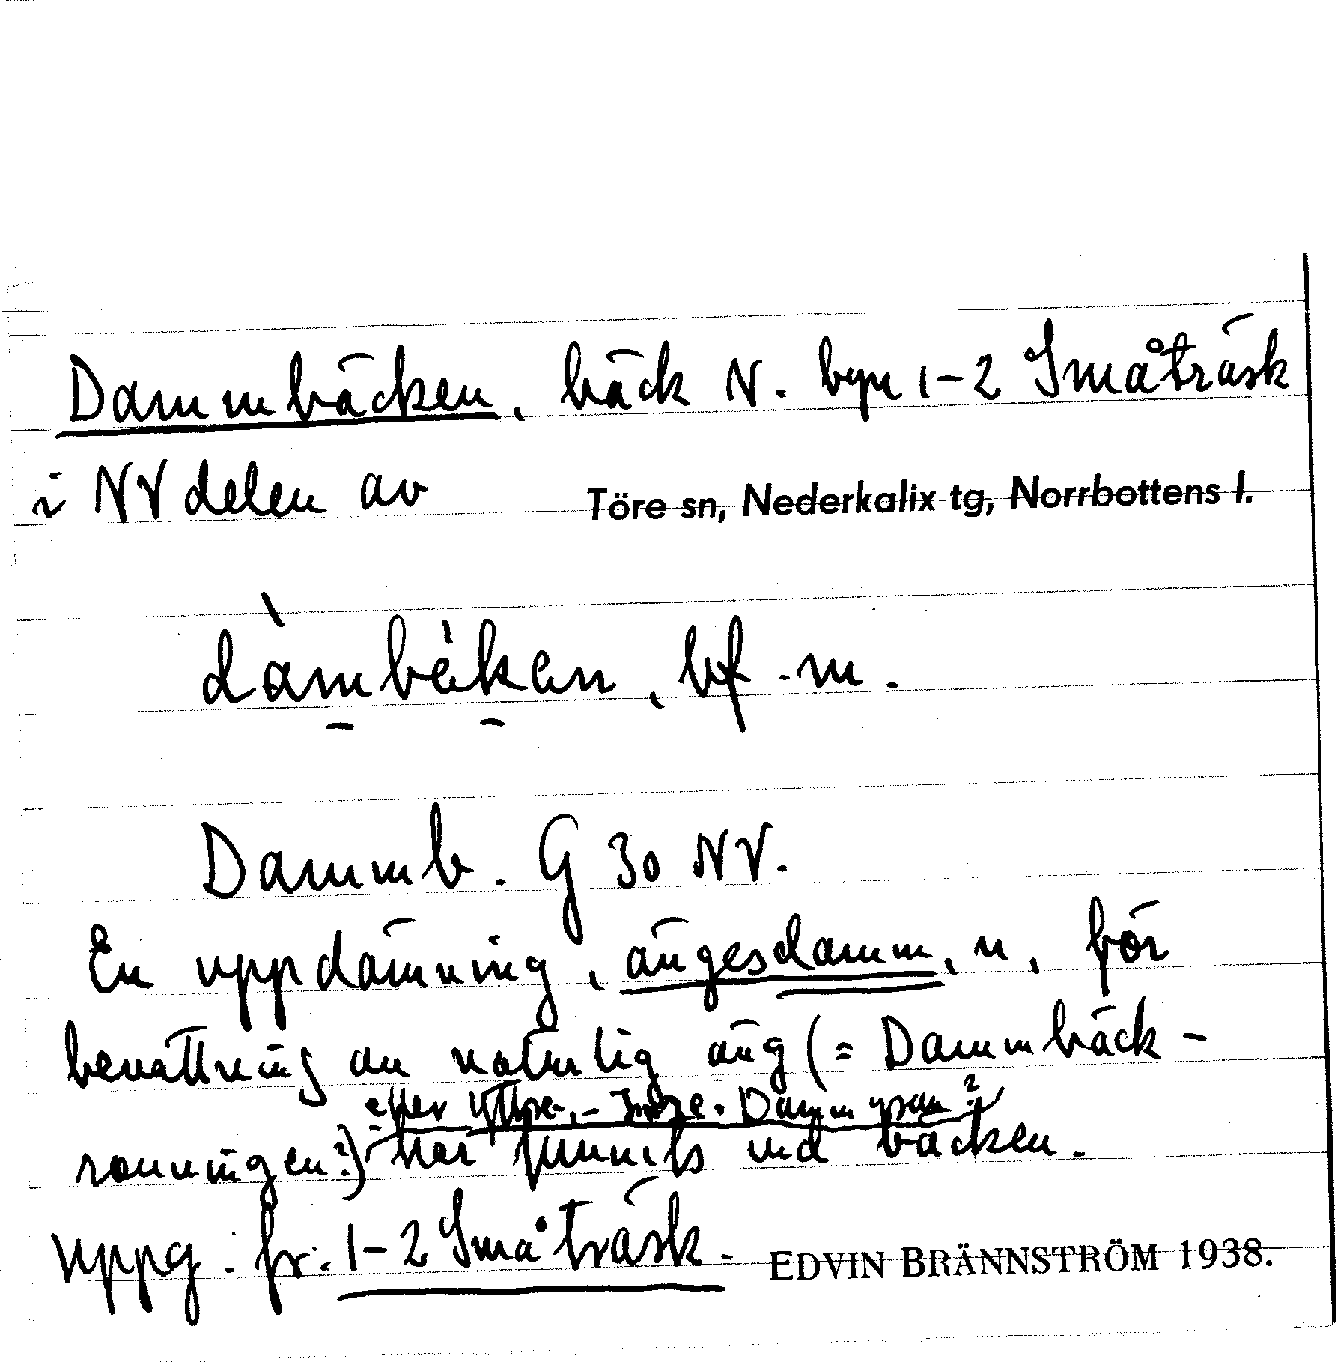 Dammbäcken, bäck N. byn 1-2 Småträsk
i NV delen av Töre sn, Nederkalix tg, Norrbottens l.
dàmbèkan, bf. m.
Dammb. G 30 NV.
En uppdämning, ängesdamm, n, för
bevattning av naturlig äng (= Dammbäck-
eller Yttre-, - Inre- Damm
ronningen?) har funnits vid bäcken.
Uppg. fr. 1-2 Småträsk. EDVIN BRÄNNSTRÖM 1938.